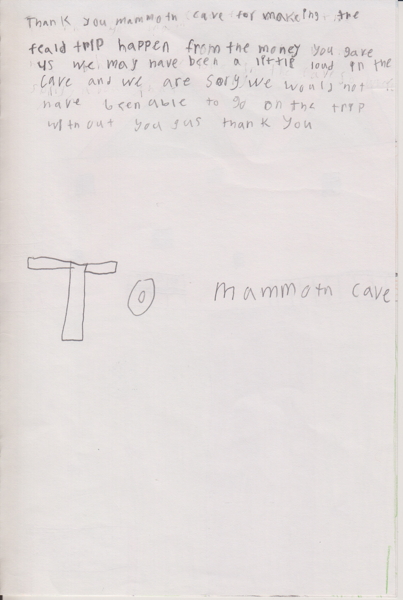 Thank you mammoth cave for makeing the
feald trip happen from the money you gave
us we may have been a little loud in the
cave and we are sory we would not
have been able to go on the trip
without you gus thank you
To mammoth cave